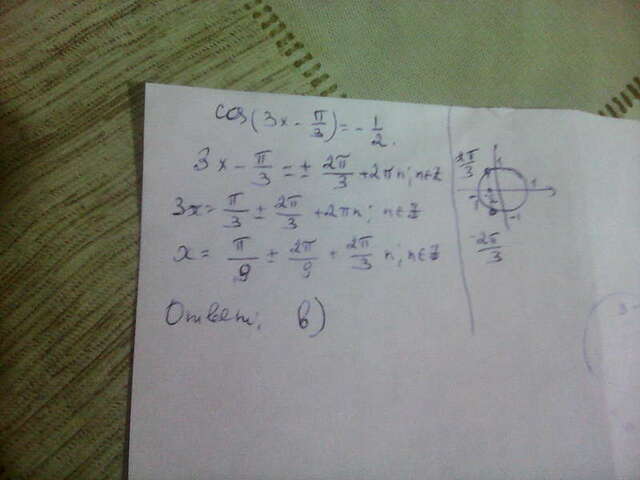 cos(3x - π/3) = - 1/2.
3x - π/3 = ± 2π/3 + 2πn; n∈Z
3x = π/3 ± 2π/3 + 2πn; n∈Z
x = π/9 ± 2π/9 + 2π/3 n; n∈Z
Ответ: в)
2π/3
1
1
-1
-2π/3